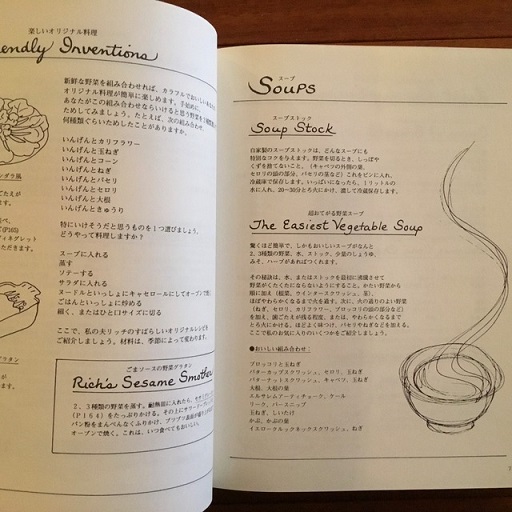 楽しいオリジナル料理
endly Inventions
新鮮な野菜を組み合わせれば、カラフルでおいしい
オリジナル料理が簡単に楽しめます。手始めに、
あなたがこの組み合わせならいけると思う野菜を
ためしてみましょう。たとえば、次の組み合わせ、
何種類ぐらいためしたことがありますか。
いんげんとカリフラワー
いんげんと玉ねぎ
いんげんとコーン
いんげんとねぎ
いんげんとパセリ
いんげんとセロリ
いんげんと大根
いんげんときゅうり
特にいけそうだと思うものを1つ選びましょう。
どうやって料理しますか?
スープに入れる
蒸す
ソテーする
サラダに入れる
ヌードルといっしょにキャセロールにしてオーブンで焼く
ごはんといっしょに炒める
細く、またはひと口サイズに切る
ここで、私の夫リッチのすばらしいオリジナルレシピを
ご紹介しましょう。材料は、季節によって変わります。
ごまソースの野菜グラタン
Rich's Sesame Smother
2、3種類の野菜を蒸す。耐熱皿に入れたら、
(P164)をたっぷりかける。その上に
パン粉をまんべんなくふりかけ、
オーブンで焼く。これは、いつ食べてもおいしい。
スープ
Soups
スープストック
Soup Stock
自家製のスープストックは、どんなスープにも
特別なコクを与えます。野菜を切るとき、しっぽや
くずを捨てないこと。(キャベツの外側の葉、
セロリの頭の部分、パセリの茎など)これをビンに入れ、
冷蔵庫で保存します。いっぱいになったら、1リットルの
水に入れ、20~30分とろ火にかけ、濾して冷蔵保存します。
超おてがる野菜スープ
The Easiest Vegetable Soup
驚くほど簡単で、しかもおいしいスープがなんと
2、3種類の野菜、水、ストック、少量のしょうゆ、
みそ、ハーブがあればつくれます。
その秘訣は、水、またはストックを最初に沸騰させて
野菜がくたくたにならないようにすること。かたい野菜から
順に加え(根菜、ウインタースクワッシュ、葉)、
ほぼやわらかくなるまで火を通す。次に、火の通りのよい野菜
(ねぎ、セロリ、カリフラワー、ブロッコリの頭の部分など)
を加え、歯ごたえが残る程度、または、やわらかくなるまで
とろ火にかける。ほどよく味つけ、パセリやねぎなどを加える。
ここで私のお気に入りのいくつかをご紹介しましょう。
●おいしい組み合わせ:
ブロッコリと玉ねぎ
バターカップスクワッシュ、セロリ、玉ねぎ
バターナットスクワッシュ、キャベツ、玉ねぎ
大根、大根の葉
エルサレムアーティチョーク、ケール
リーク、パースニップ
玉ねぎ、しいたけ
かぶ、かぶの葉
イエロークルックネックスクワッシュ、ねぎ